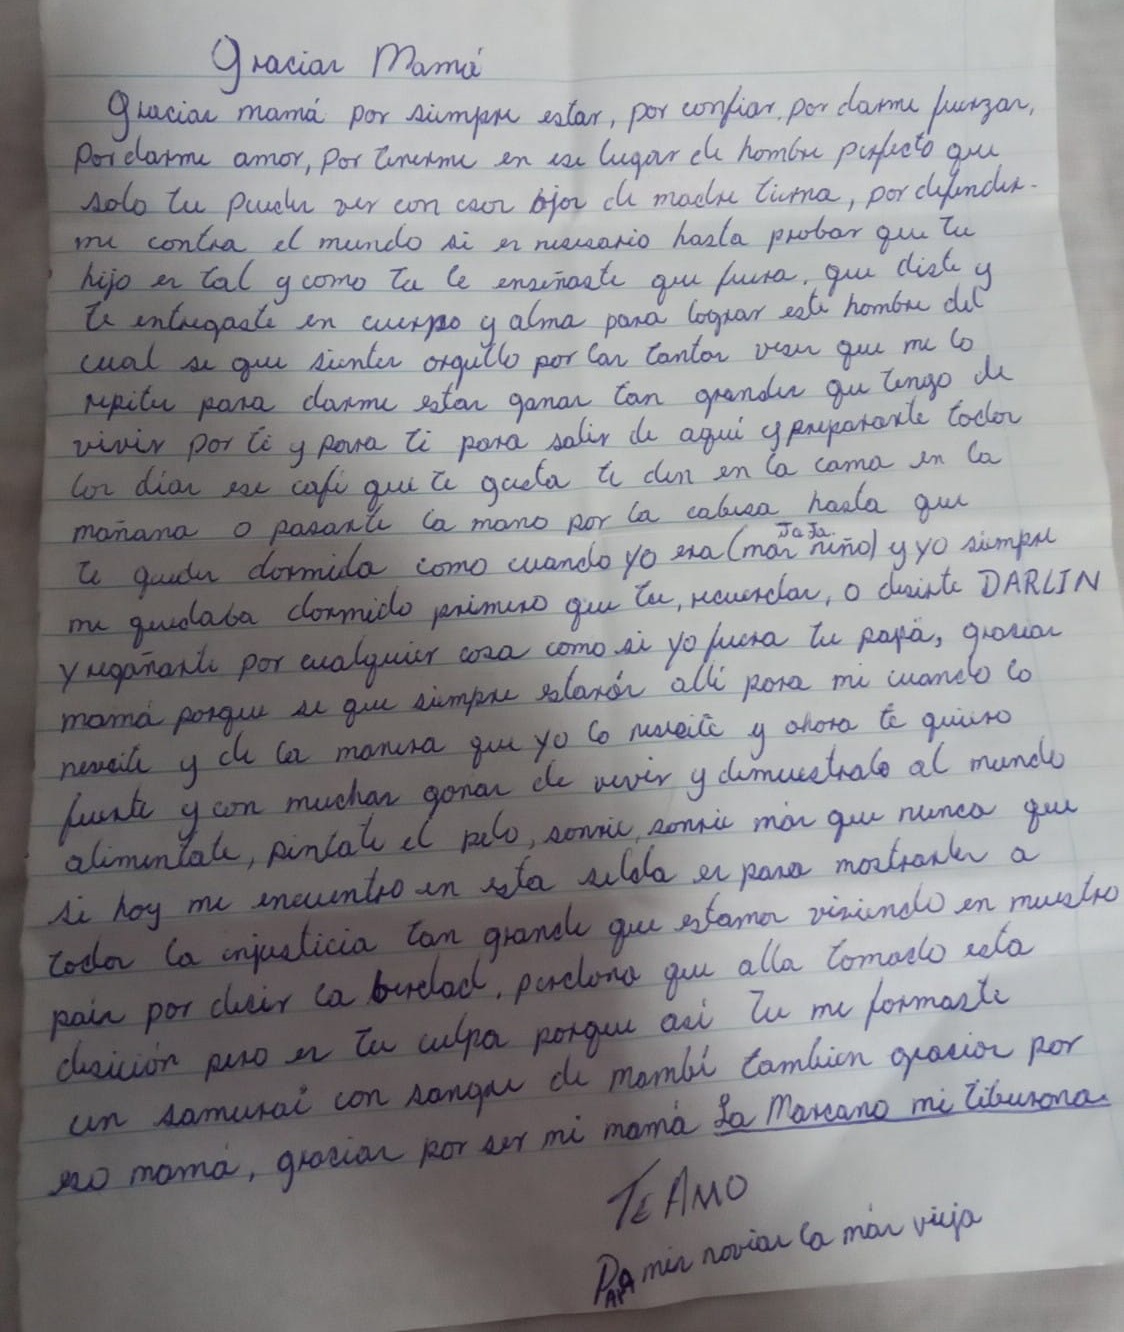 Gracias Mamá
Gracias mamá por siempre estar, por confiar, por darme fuerzas,
por darme amor, por tenerme en ese lugar de hombre perfecto que
solo tu puedes ver con esos ojos de madre tierna, por defender-
me contra el mundo si es necesario hasta probar que tu
hijo es tal y como tu le enseñaste que fuera, que diste y
te entregaste en cuerpo y alma para lograr este hombre del
cual se que sientes orgullo por las tantas veses que me lo
repites para darme estas ganas tan grandes que tengo de
vivir por ti y para ti para salir de aquí y prepararte todos
los dias ese café que te gusta te den en la cama en la
mañana o pasarte la mano por la cabesa hasta que
te quedes dormida como cuando yo era (mas niño) JaJa. y yo siempre
me quedaba dormido primero que tu, recuerdas, o desirte DARLIN
y regañarte por cualquier cosa como si yo fuera tu papá, gracias
mamá porque se que siempre estarás allí para mi cuando lo
nesesite y de la manera que yo lo nesesite y ahora te quiero
fuerte y con muchas ganas de vivir y demuestralo al mundo
alimentate, pintate el pelo, sonrie, sonrie más que nunca que
si hoy me encuentro en esta selda es para mostrarles a
todos la injusticia tan grande que estamos viviendo en nuestro
pais por desir la berdad, perdona que alla tomado esta
desición pero es tu culpa porque así tu me formaste
un samurai con sangre de mambí tambien gracias por
eso mamá, gracias por ser mi mamá La Marcano mi tiburona.
TE AMO
PAPA mis novias la más vieja